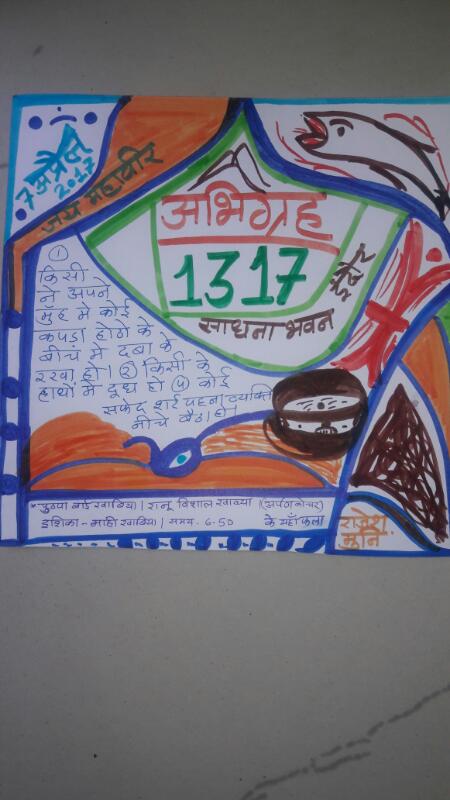 7 अप्रैल
2017
जय महावीर
अभिग्रह
1317
साधना भवन
इन्दौर
①
किसी
ने अपने
मुह मे कोई
कपड़ा होठो के
बीच मे दबा के
रखा हो। ② किसी के
हाथो मे दूध हो ④ कोई
सफेद शर्ट पहना व्यक्ति
नीचे बैठा हो।
विशाल
इशिका - माही खाबिया। समय - 6-50 के यहाँ फला
राजेश
मुनि